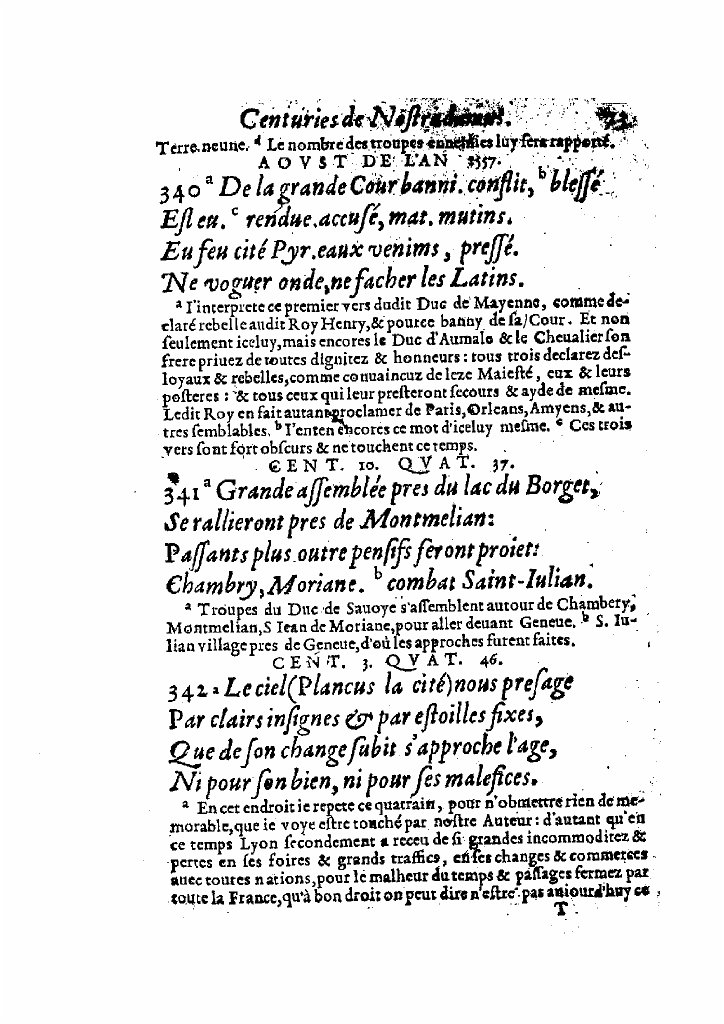 Centuries de Nostradamus. 73
Terre.neuue. ᵈ Le nombre des troupes ennemies luy sera rapporté.
AOVST DE L'AN 1557.
340 ᵃ De la grande Cour banni. conflit, ᵇ blessé
Esleu. ᶜ rendue.accusé, mat. mutins.
Eu feu cité Pyr.eaux venims, pressé.
Ne voguer onde,ne facher les Latins.
ᵃ I'interprete ce premier vers dudit Duc de Mayenne, comme de-
claré rebelle audit Roy Henry,& pource banny de sa Cour. Et non
seulement iceluy,mais encores le Duc d'Aumale & le Cheualier son
frere priuez de toutes dignitez & honneurs : tous trois declarez des-
loyaux & rebelles,comme conuaincuz de leze Maiesté, eux & leurs
posteres : & tous ceux qui leur presteront secours & ayde de mesme.
Ledit Roy en fait autant proclamer de Paris,Orleans,Amyens,& au-
tres semblables. ᵇ I'enten encores ce mot d'iceluy mesme. ᶜ Ces trois
vers sont fort obscurs & ne touchent ce temps.
CENT. 10. QVAT. 37.
341 ᵃ Grande assemblée pres du lac du Borget,
Se rallieront pres de Montmelian:
Passants plus outre pensifs feront proiet:
Chambry,Moriane. ᵇ combat Saint-Iulian.
ᵃ Troupes du Duc de Sauoye s'assemblent autour de Chambery,
Montmelian,S Iean de Moriane,pour aller deuant Geneue. ᵇ S. Iu-
lian village pres de Geneue,d'où les approches furent faites.
CENT. 3. QVAT. 46.
342 ᵃ Le ciel(Plancus la cité)nous presage
Par clairs insignes & par estoilles fixes,
Que de son change subit s'approche l'age,
Ni pour son bien, ni pour ses malefices.
ᵃ En cet endroit ie repete ce quatrain, pour n'obmettre rien de me-
morable,que ie voye estre touché par nostre Auteur: d'autant qu'en
ce temps Lyon secondement a receu de si grandes incommoditez &
pertes en ses foires & grands traffics, en ses changes & commerces
auec toutes nations,pour le malheur du temps & passages fermez par
toute la France,qu'à bon droit on peut dire n'estre pas auiourd'huy ce
T